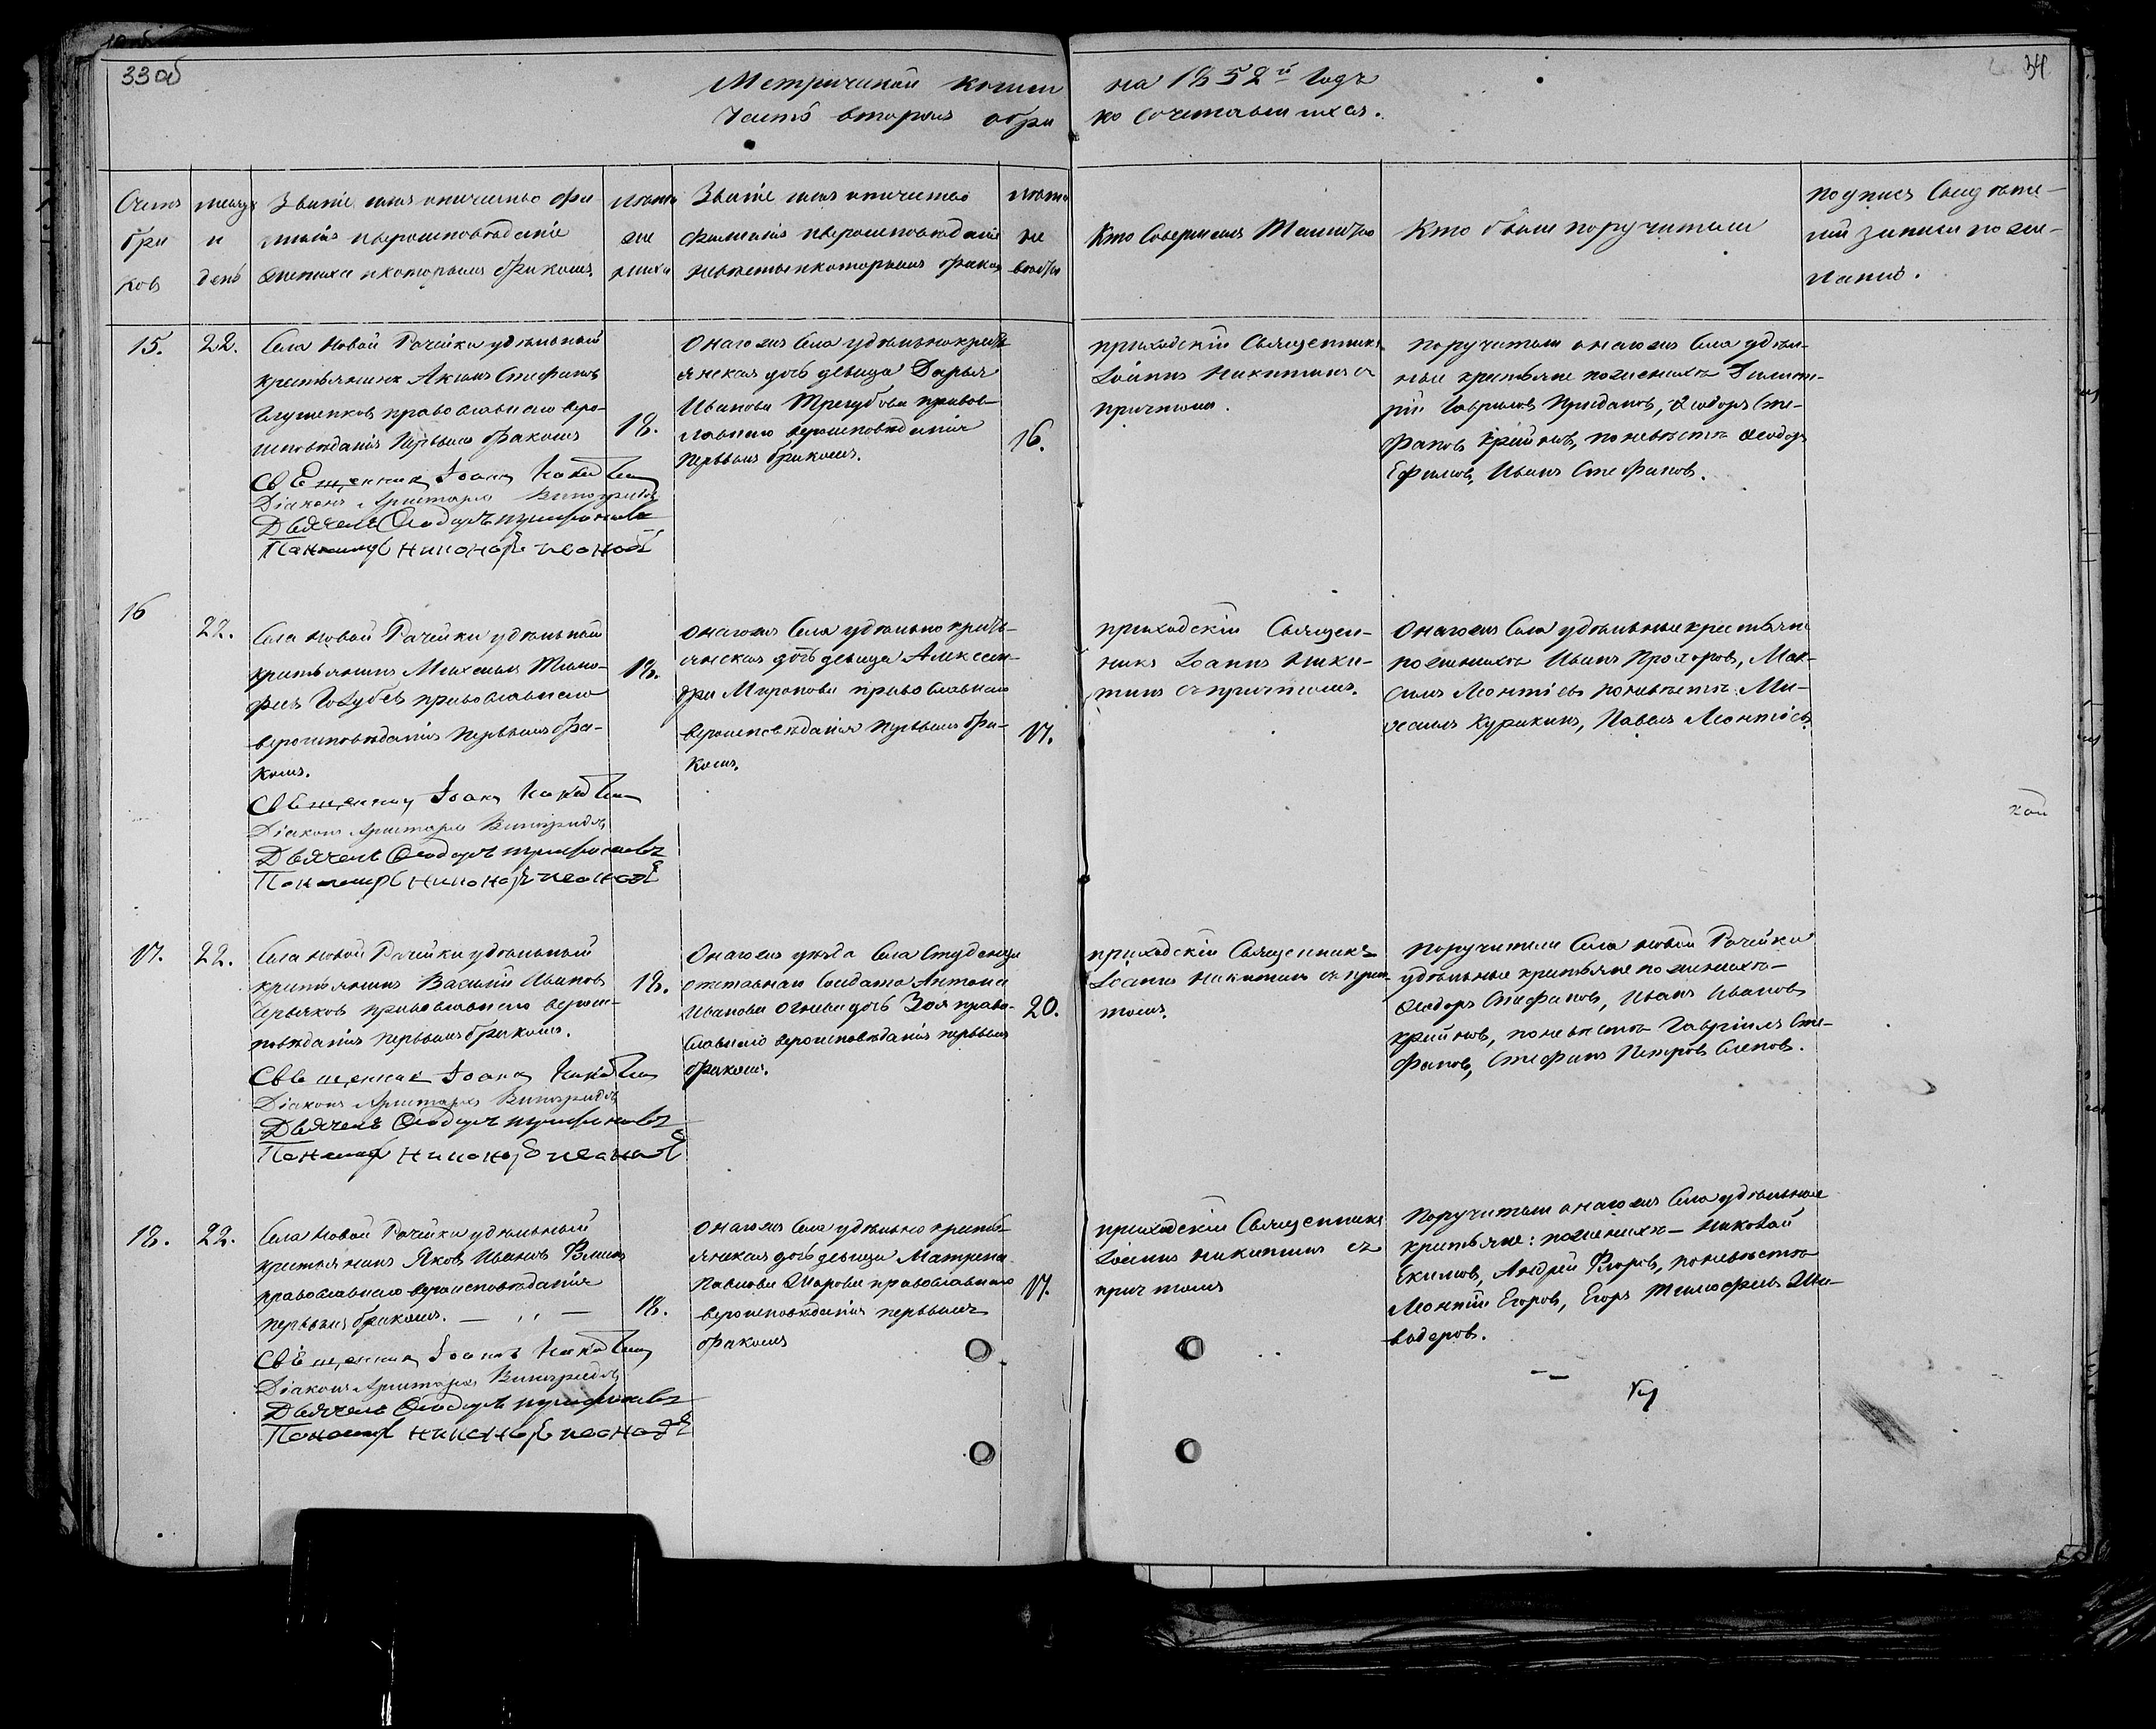 33 об
34
Метрической книги на 1852й Годъ
Часть вторая о бра ко сочетавшихся.
Счетъ бра ковъ
месяцъ и день
Званiе имя отчество фа
милiя и вероисповѣданiе
жениха и которымъ бракомъ.
лѣта же ниха
Званiе имя отчество
фамилiя и вероисповѣданiе
невѣсты и которымъ бракомъ
лѣта не вѣсты
Кто Совершалъ Таинство
Кто были поручители
подпись Свидѣте-
лей записи по же-
ланiю.
15.
22.
Села Новой Рачейки удѣльный
крестьянинъ Акимъ Стефановъ
православнаго веро-
исповѣданiя первымъ бракомъ
Священникъ Iоаннъ Никитинъ
Дiаконъ Аристархъ Виноградовъ
Дьячекъ Ѳеодоръ
Пономарь Никаноръ
18.
Онагожъ Села удѣльнокресть
янская дочь девица Дарья
Иванова Трегубова правос-
лавнаго вероисповѣданiя
первымъ бракомъ.
16.
приходскiй Священникъ
Iоаннъ Никитинъ съ
причтомъ.
Поручители онагожъ Села удѣль-
ные крестьяне по женихѣ Димит-
рiй Гавриловъ Приданов, Ѳеодоръ Сте-
фановъ Крайновъ, по невѣстѣ Ѳеодоръ
Ефимовъ, Иванъ Стефановъ.
16
22.
Села Новой Рачейки удѣльный
крестьянинъ Михаилъ Тимо-
феевъ Голубевъ православнаго
вероисповѣданiя первымъ бра-
комъ.
Священникъ Iоаннъ Никитинъ
Дiаконъ Аристархъ Виноградовъ
Дьячекъ Ѳеодоръ
Пономарь Никаноръ
18.
онагожъ Села удѣльно кресть-
янская дочь девица Алексан-
дра Миронова православнаго
вероисповѣданiя первымъ бра-
комъ.
17.
приходскiй Священ-
никъ Iоаннъ Ники-
тинъ съ причтомъ.
Онагожъ Села удѣльные крестьяне
по женихѣ Иванъ Прохоровъ, Мак-
симъ Леонтiевъ по невѣстѣ Ми-
хаилъ Куракинъ, Павелъ Леонтiевъ.
17.
22.
Села Новой Рачейки удѣльный
крестьянинъ Василiй Ивановъ
Червяковъ православнаго вероис-
повѣданiя первымъ бракомъ.
Священникъ Iоаннъ Никитинъ
Дiаконъ Аристархъ Виноградовъ
Дьячекъ Ѳеодоръ
Пономарь Никаноръ
18.
Онагожъ уѣзда Села Студенца
отставнаго Солдата Антона
Иванова Огнева дочь Зоя право-
славнаго вероисповѣданiя первымъ
бракомъ.
20.
приходскiй Священникъ
Iоаннъ Никитинъ съ прич
томъ.
Поручители Села Новой Рачейки
удѣльные крестьяне по женихѣ-
Ѳеодоръ Стефановъ, Иванъ Ивановъ
Крайновъ, по невѣстѣ Гаврiилъ Сте-
фановъ, Стефанъ Петровъ
18.
22.
Села Новой Рачейки удѣльный
крестьянинъ Яковъ Ивановъ
православнаго вероисповѣданiя
первымъ бракомъ. — „ —
Священникъ Iоаннъ Никитинъ
Дiаконъ Аристархъ Виноградовъ
Дьячекъ Ѳеодоръ
Пономарь Никаноръ
18.
онагожъ Села удѣльно кресть-
янская дочь девица Матрена
Павлова православнаго
вероисповѣданiя первымъ
бракомъ
17.
приходскiй Священникъ
Iоаннъ Никитинъ съ
причтомъ
Поручители онагожъ Села удѣльные
крестьяне: по женихѣ- Николай
Екимовъ, Андрей по невѣстѣ
Леонтiй Егоровъ, Егоръ Тимофеевъ